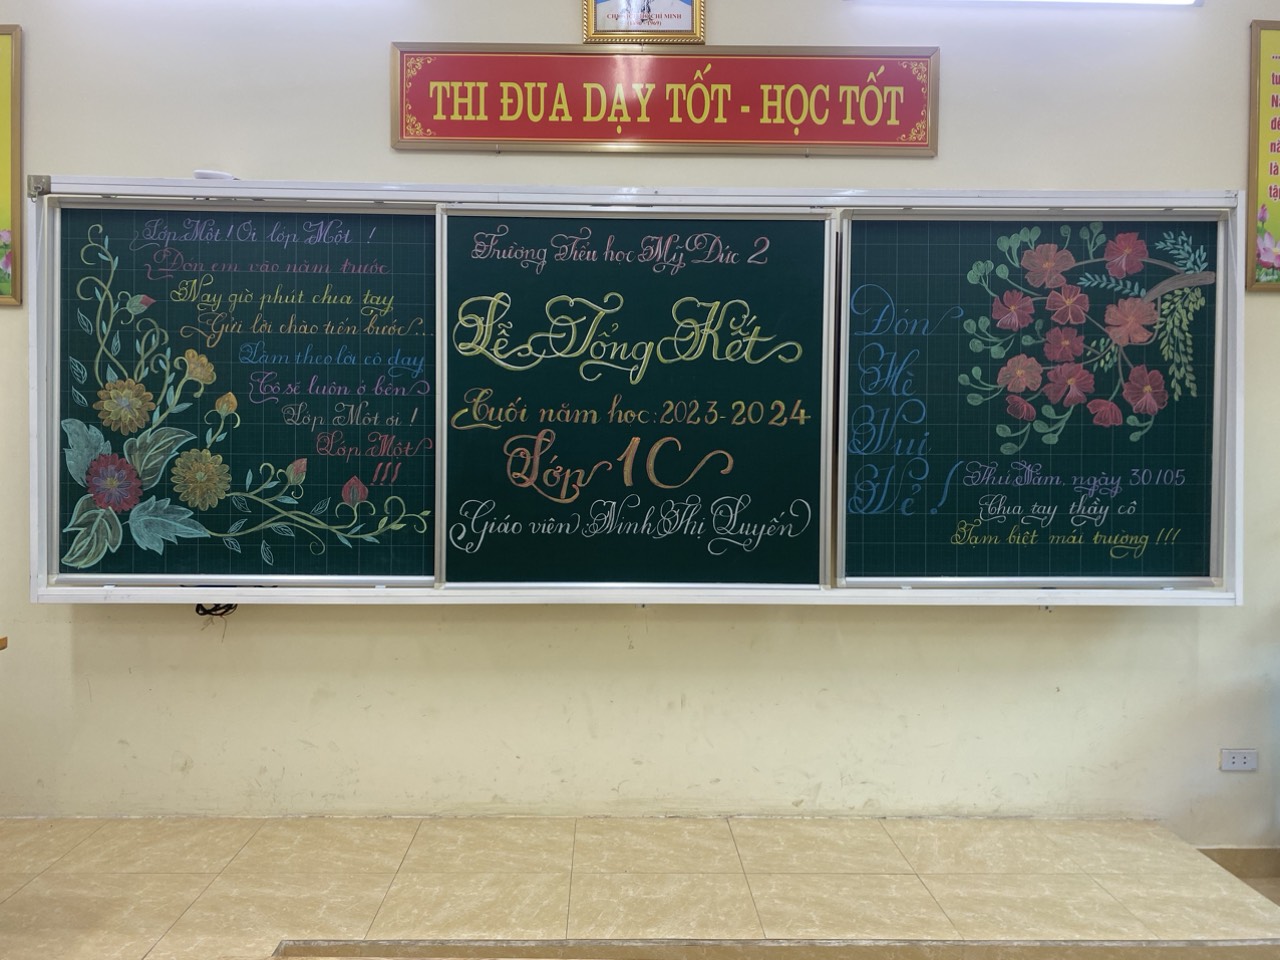 CHỦ TỊCH HỒ CHÍ MINH
THI ĐUA DẠY TỐT - HỌC TỐT
Lớp Một! Ơi lớp Một !
Đón em vào năm trước
Nay giờ phút chia tay
Gửi lời chào tiến bước...
Làm theo lời cô dạy
Cô sẽ luôn ở bên
Lớp Một ơi !
Lớp Một
!!!
Trường Tiểu học Mỹ Đức 2
Lễ Tổng Kết
Cuối năm học: 2023-2024
Lớp 1C
Giáo viên: Ninh Thị Luyến
Đón
Hè
Vui
Vẻ !
Thứ Năm, ngày 30/05
Chia tay thầy cô
Tạm biệt mái trường !!!